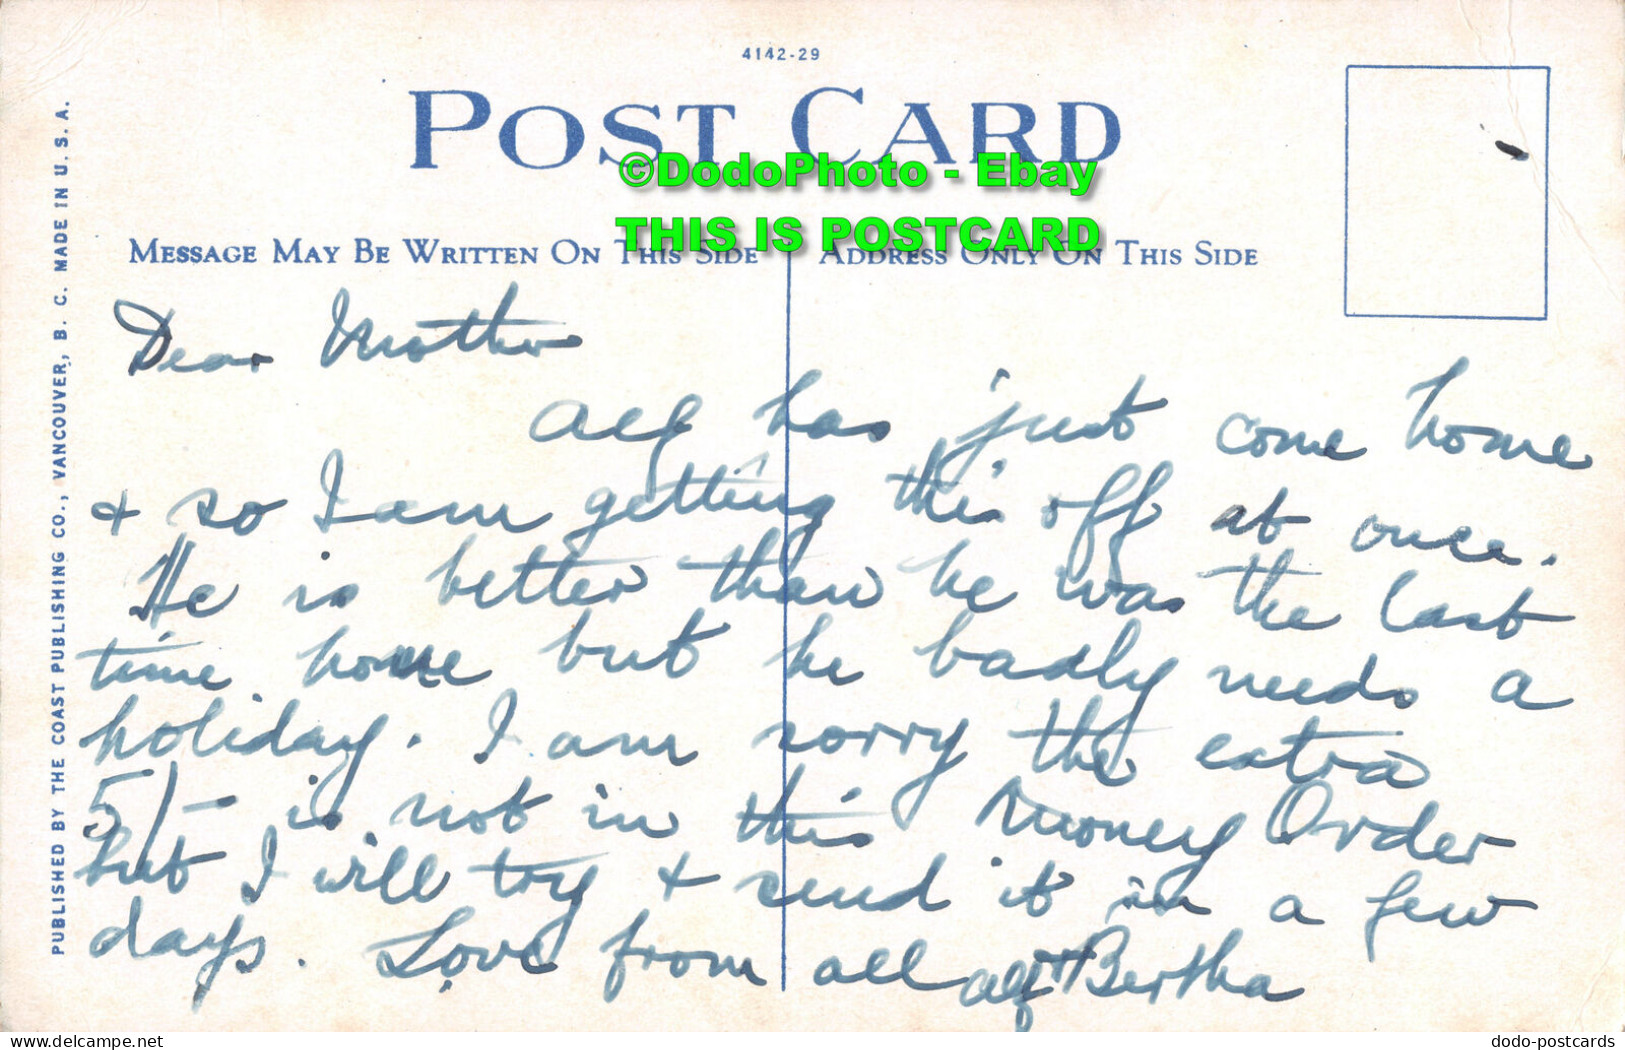 4142-29
POST CARD
©DodoPhoto - Ebay
THIS IS POSTCARD
MESSAGE MAY BE WRITTEN ON THIS SIDE
ADDRESS ONLY ON THIS SIDE
PUBLISHED BY THE COAST PUBLISHING CO., VANCOUVER, B. C. MADE IN U. S. A.
Dear Mother
Alf has just come home
+ so I am getting this off at once.
He is better than he was the last
time home but he badly needs a
holiday. I am sorry the extra
5/- is not in this Money Order
but I will try + send it in a few
days. Love from all Alf + Bertha
delcampe.net
dodo-postcards